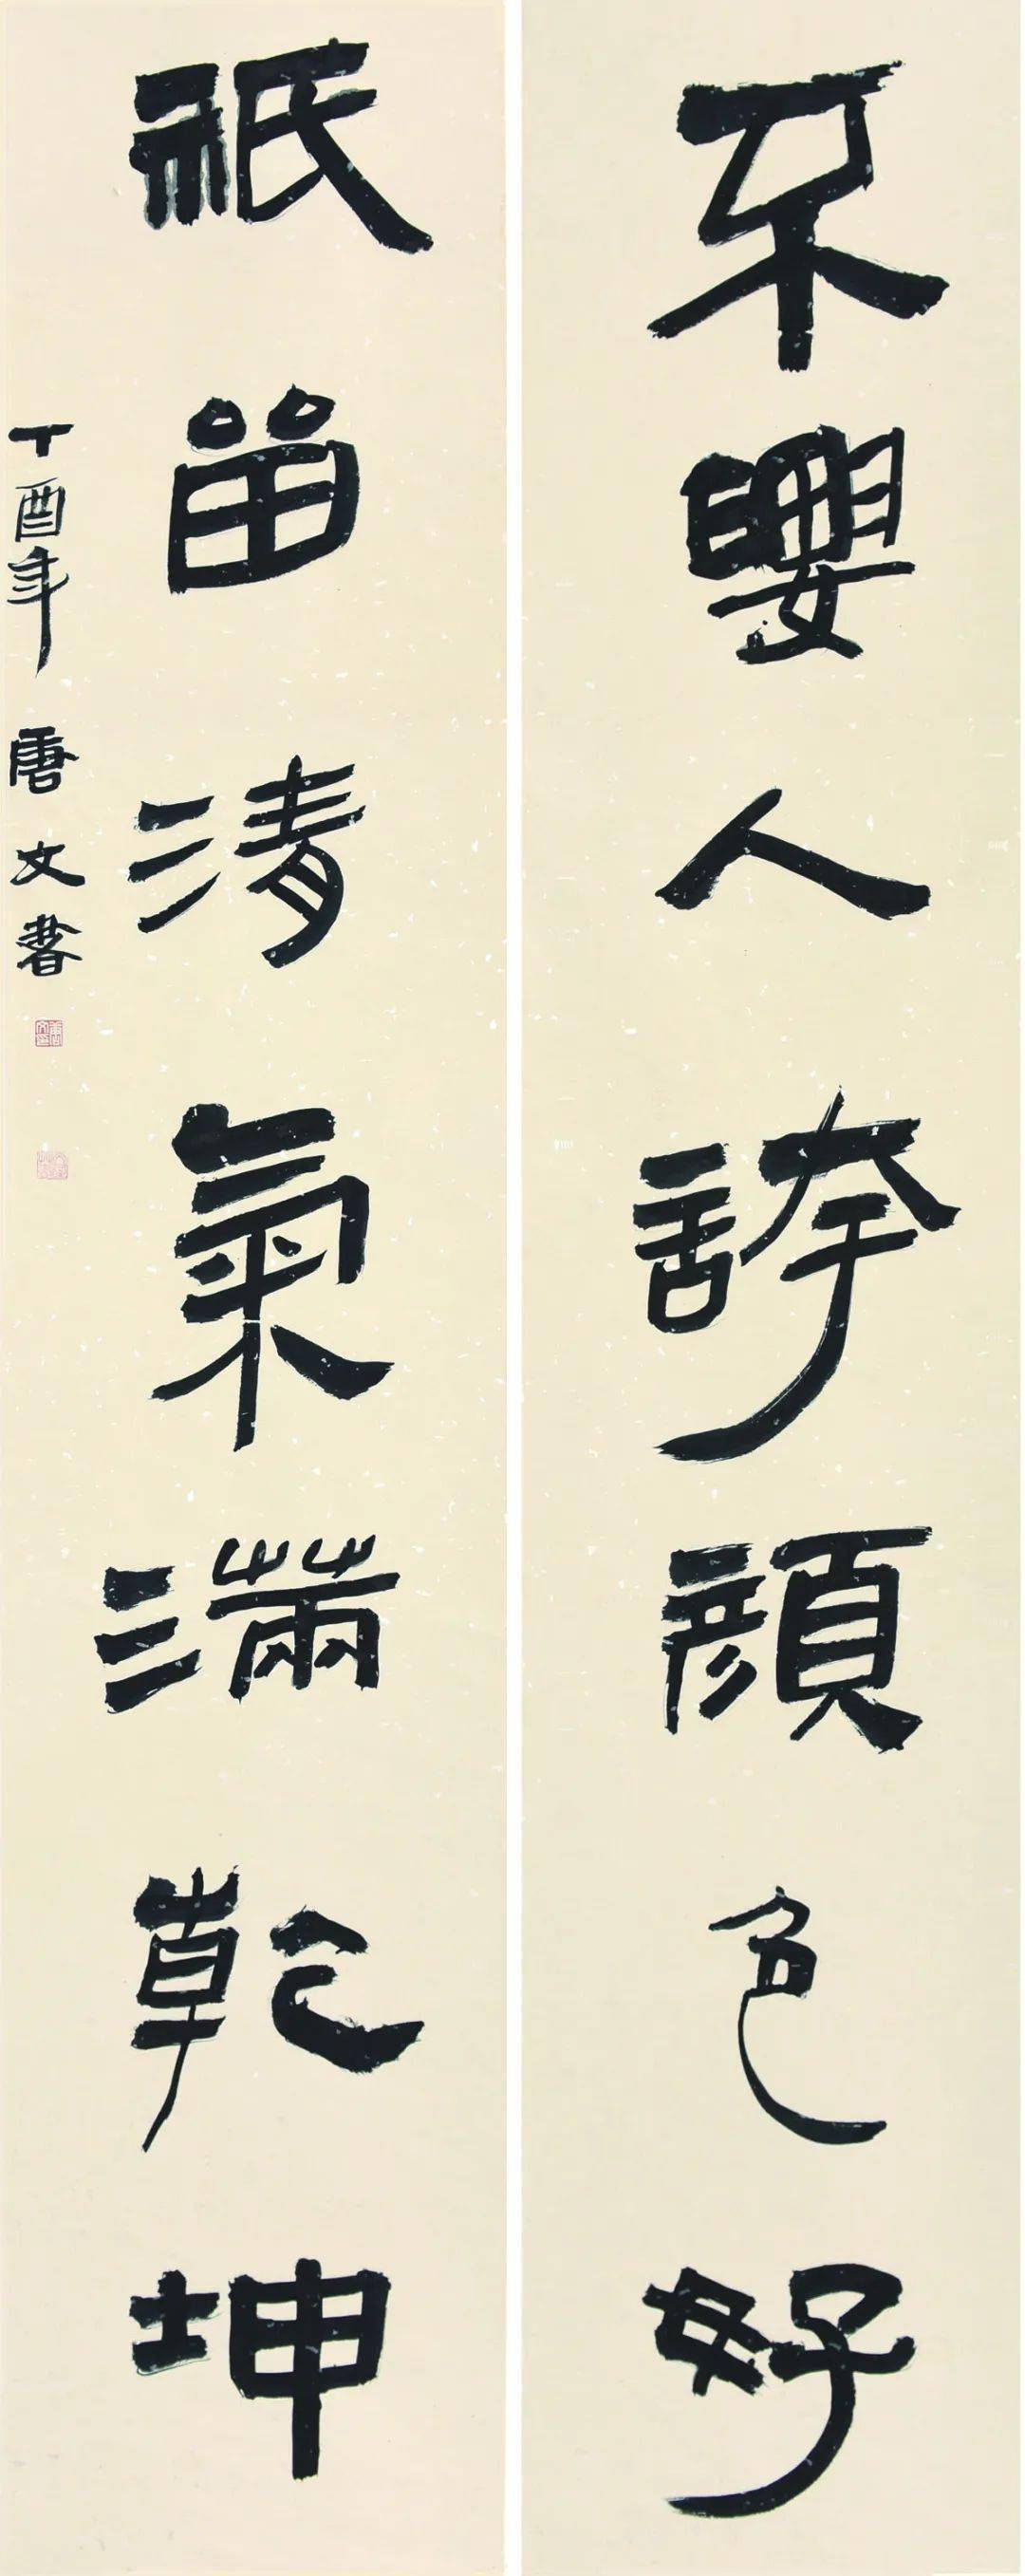 不要人誇顏色好
祇留清氣滿乾坤
丁酉年 唐文書